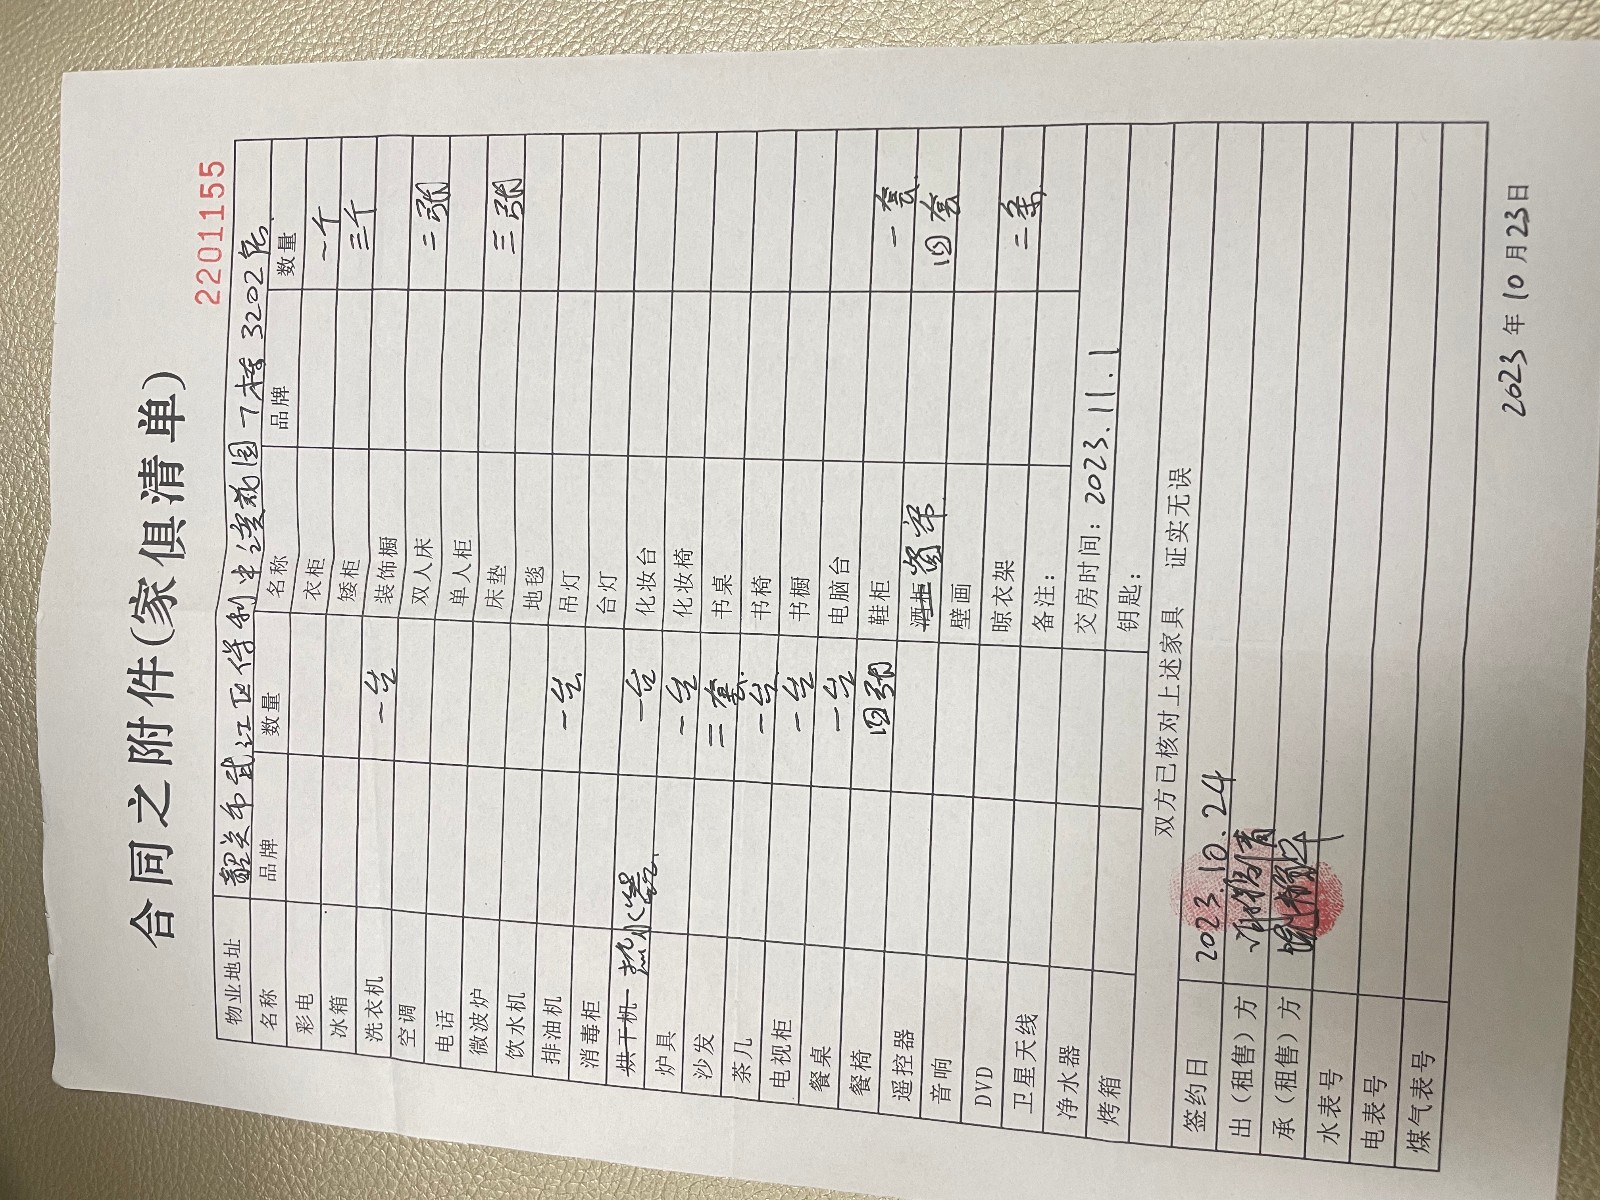 合同之附件(家俱清单)
2201155
物业地址 韶关市武江区保利中达花园7栋3202房
名称 品牌 数量 名称 品牌 数量
彩电 衣柜 一个
冰箱 矮柜 三个
洗衣机 一台 装饰橱
空调 双人床 二张
电话 单人柜
微波炉 床垫 三张
饮水机 地毯
排油机 一台 吊灯
消毒柜 台灯
烘干机 热水器 一台 化妆台
炉具 一台 化妆椅
沙发 二套 书桌
茶几 一台 书椅
电视柜 一台 书橱
餐桌 一台 电脑台
餐椅 四张 鞋柜 一套
遥控器 酒柜 窗帘 四套
音响 壁画
DVD 晾衣架 二条
卫星天线 备注：
净水器 交房时间：2023.11.1
烤箱 钥匙：
双方已核对上述家具 证实无误
签约日 2023.10.24
出（租售）方
承（租售）方
水表号
电表号
煤气表号
2023年10月23日